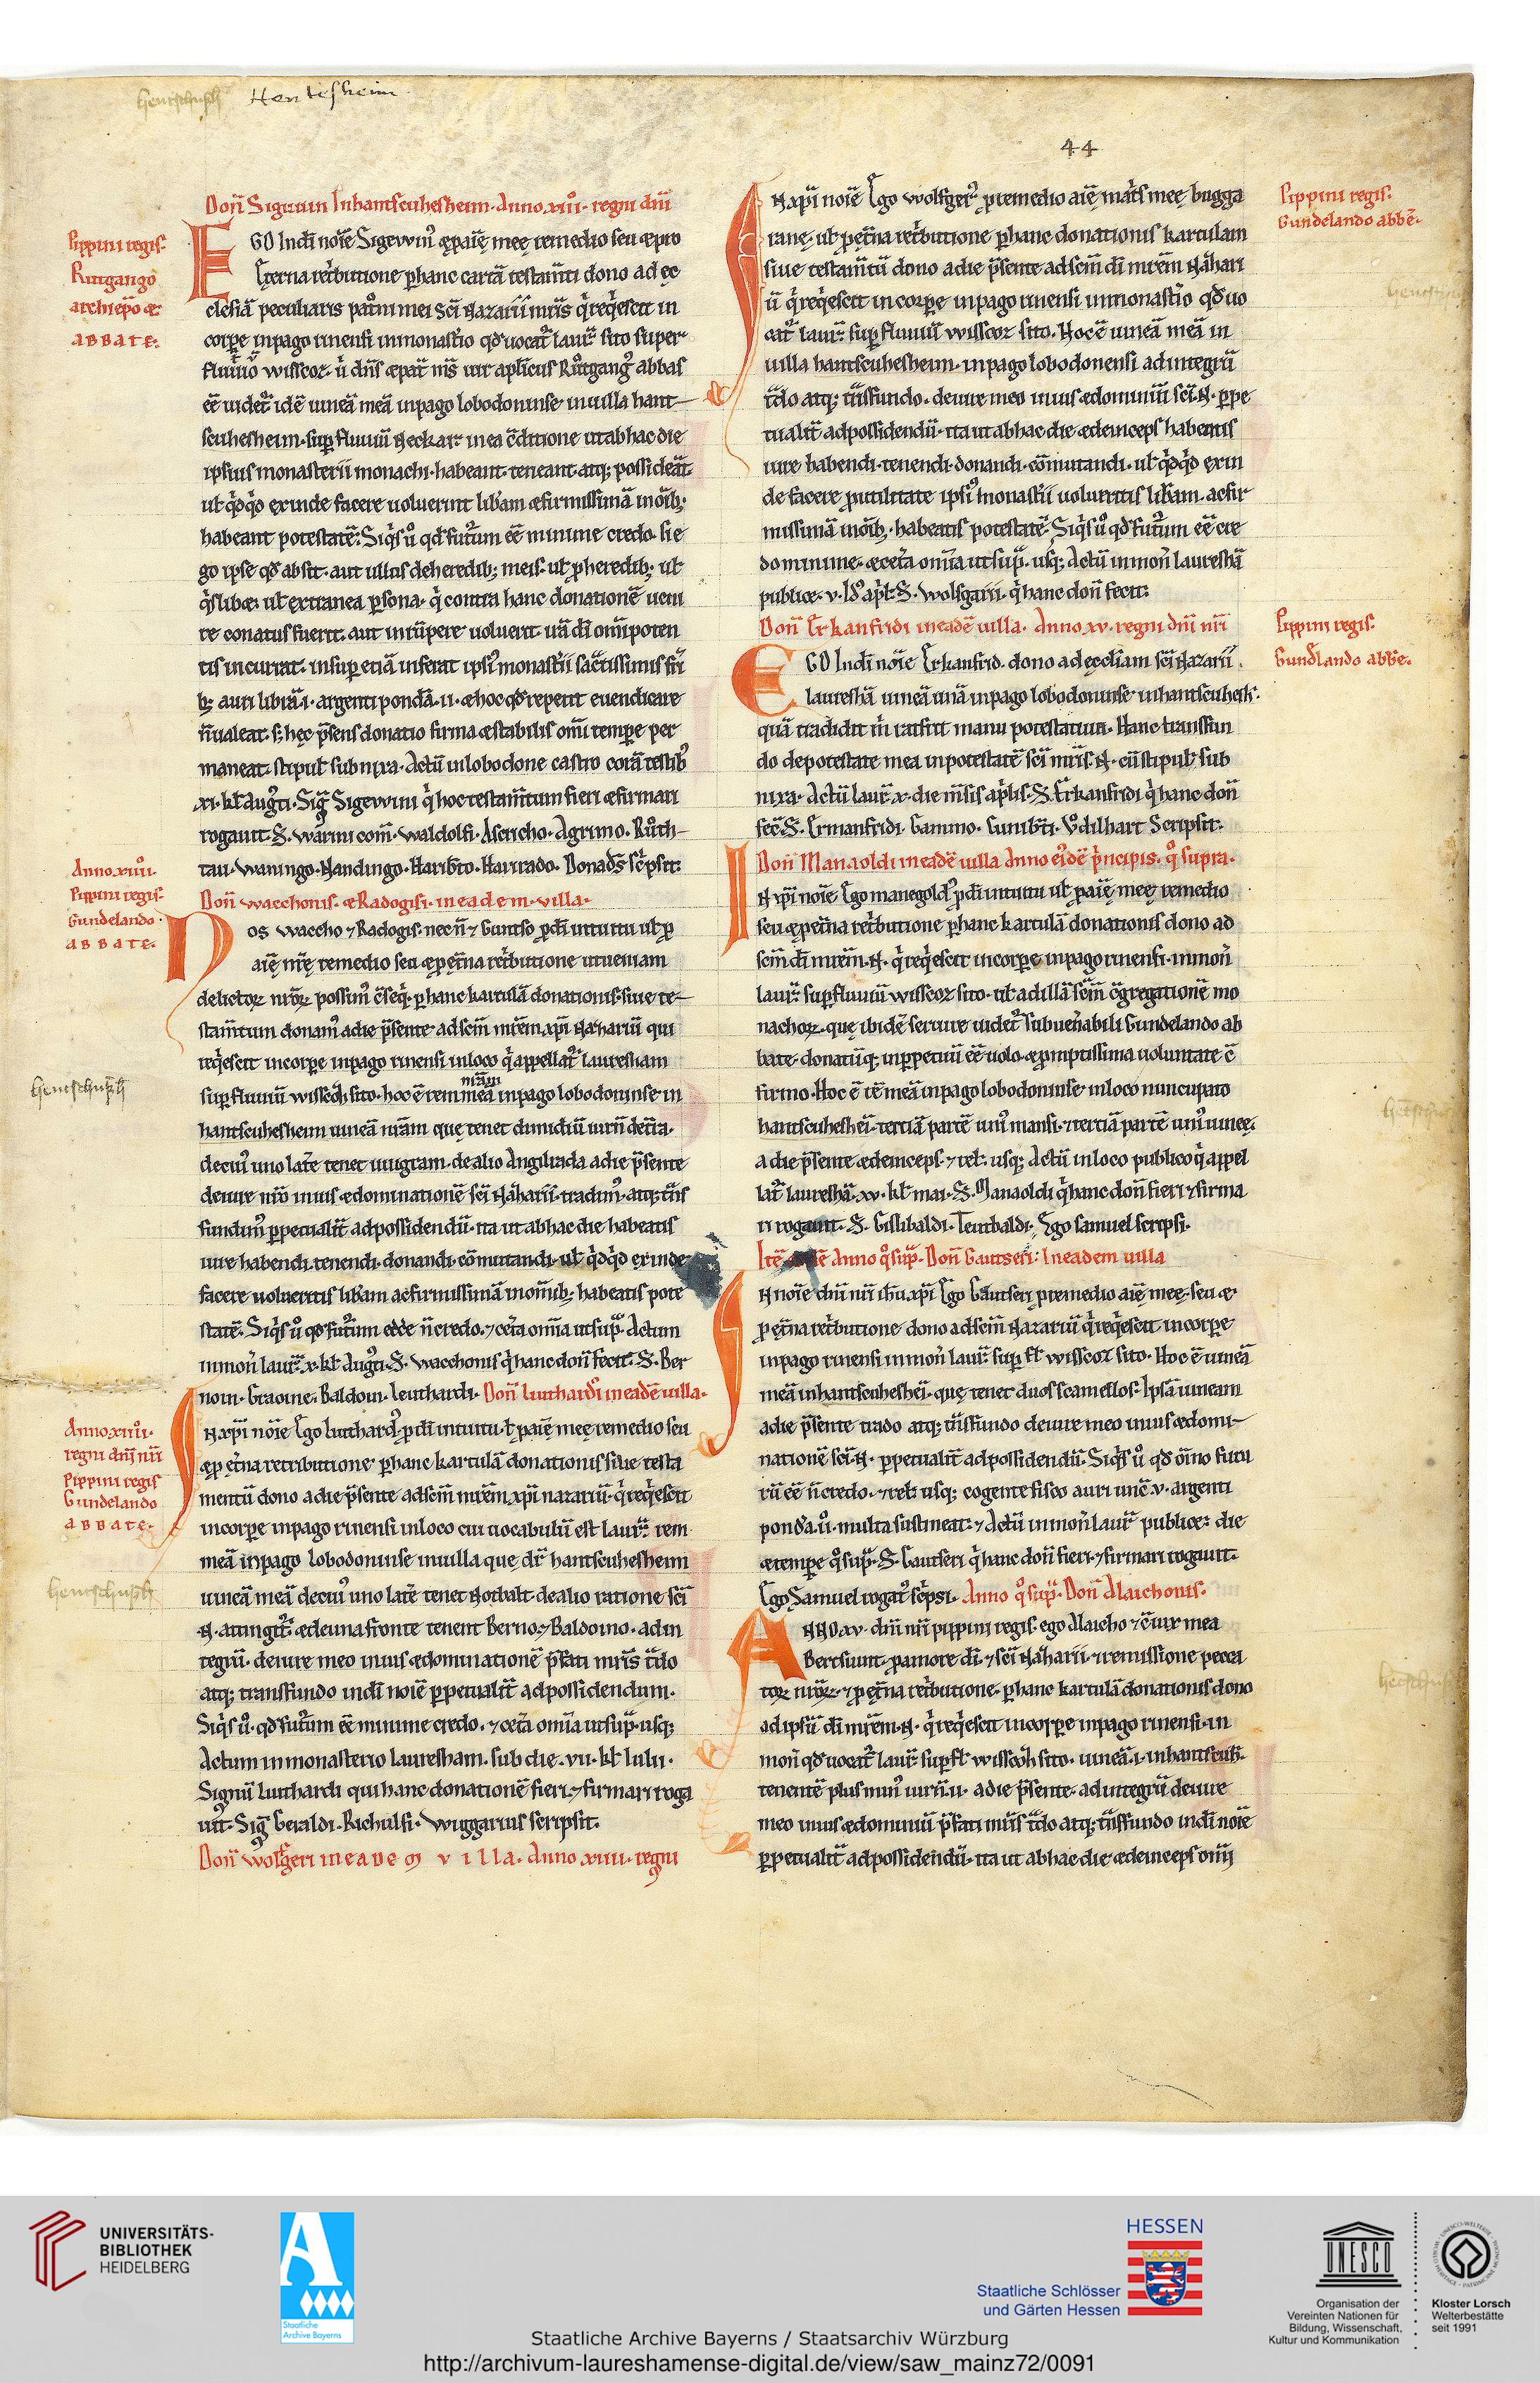 hentschuszh Hentesheim
44
Don̄ Sigewin In hantscuhesheim. Anno xiiii. regni dn̄i
Pippini regis.
Rutgango
archiep̄o æ
ABBATE.
EGO In dī nōie Sigewinꝰ ꝓ aīę meę remedio seu ꝓ
ęterna ret̄butione ꝑ hanc cartā testam̄ti dono ad ec
clesiā peculiaris pat̄ni mei sc̄i Nazarii mr̄is q̇ reqͥescit in
corꝑe in pago rinensi in monast̄io qd̄ uocat̄ laur̄ sito super
fluuiū wisscoz. ū dn̄s æ pat̄ nr̄s uir apl̄icus Rutgangꝰ abbas
eē uidet̄ id ē uineā meā in pago lobodoninse in uilla hant
scuhesheim. suꝑ fluuiū Neckar in ea c̄ditione ut ab hac die
ipsius monasterii monachi. habeant teneant atq; possideāt.
ul̄ qͥdqͥd exinde facere uoluerint lib̄am æ firmissimā in ōib;
habeant potestatē. Siqͥs ū qd̄ fut̄um eē minime credo. si e
go ipse qd̄ absit. aut ullus de heredib; meis. ul̄ ꝓheredib; ul̄
qͥslibæ. ul̄ extranea ꝑsona. q̇ contra hanc donationē ueni
re conatus fuerit. aut inrūpere uoluerit. irā dī om̄ipoten
tis incurrat. insuꝑ etiā inferat ipsi monast̄ii sac̄tissimis fr̄i
b; auri librā.i. argenti pondā.ii. æ hoc qd̄ repetit euendicare
n̄ ualeat. s; hęc p̄sens donatio firma æ stabilis om̄i tempe per
maneat. stipul̄ subnixa. Actū in lobodone castro corā testibꝰ
xi. kl̄ Augꝰti. Sig̅ Sigewini q̇ hoc testam̄tum fieri æ firmari
rogauit. S. warini com̄. waldolfi. Asericho. Agrimo. Ruth
tau. waningo. Nandingo. Harib̄to. Hartrado. Donads̄ sc̄psit.
Anno xiiii.
Pippini regis.
Gundelando.
ABBATE.
Don̄ wacchonis. æ Radogisi. in eadem. villa.
Nos waccho ⁊ Radogis. nec n̄ ⁊ Guntso ꝓ dī intuitu ul̄ ꝓ
aīę nr̄ę remedio seu æ ꝓ et̄na ret̄butione ut ueniam
delictoꝝ nr̄oꝝ possimꝰ c̄seq̄. ꝑ hanc kartulā donationis. siue te
stam̄tum donamꝰ a die p̄sente. ad sc̄m mr̄em xp̄i Nazhariū qui
reqͥescit in corꝑe in pago rinensi in loco q̇ appellat̄ lauresham
hentschuszh
suꝑ fluuiū wisscoz sito. hoc ē rem nr̄am in pago lobodoninse in
hantscuhesheim uineā nr̄am que tenet dimidiū iurn̄ de t̄ia.
de ciuꝰ uno lat̄e tenet uuigram. de alio Angilrada a die p̄sente
de iure nr̄o in ius æ dominationē sc̄i Nazharii. tradimꝰ. atq; t̄ns
fundimꝰ ꝑpetualit̄ ad possidendū. ita ut ab hac die habeatis
iure habendi. tenendi. donandi. cōmutandi. ul̄ qͥdqͥd exinde
facere uolueritis lib̄am ac firmissimā in om̄ib; habeatis pote
statē. Siqͥs ū qd̄ fut̄um esse n̄ credo. ⁊ cet̄a omīa ut sup̄. Actum
in mon̄ laur̄. x. kl̄ Augꝰti. S. wacchonis q̇ hanc don̄ fecit. S. Ber
noin. Graoine. Baldoin. leuthardi. Don̄ luthardi in eadē uilla.
Anno xiiii.
regni dn̄i nr̄i
Pippini regis
Gundelando
ABBATE.
In xp̄i nōie Ego luthardꝰ ꝓ dī intuitu ul̄ ꝓ aīę meę remedio seu
æ ꝓ et̄na retributione ꝑ hanc kartulā donationis siue testa
mentū dono a die p̄sente ad sc̄m mr̄em xp̄i nazariū. q̇ reqͥescit
in corꝑe in pago rinensi in loco cui uocabulū est laur̄. rem
meā in pago lobodoninse in uilla que dr̄ hantscuhesheim
hentschuszh
uineā meā de ciuꝰ uno lat̄e tenet Notbalt. de alio ratione sc̄i
N. attingit̄. æ de una fronte tenent Berno. ⁊ Baldoino. ad in
tegrū. de iure meo in ius æ dominationē p̄fati mr̄is t̄do
atq; transfundo in dī nōie ꝑpetualit̄ ad possidendum.
Siqͥs ū. qd̄ fut̄um eē minime credo. ⁊ cet̄a omīa ut sup̄. usq;
Actum in monasterio lauresham. sub die. vii. kl̄ Iulii.
Signū luthardi qui hanc donationē fieri. ⁊ firmari roga
uit. Sig̅ Geraldi. Richulfi. Wiggarius scripsit.
Don̄ wolfgeri in eadem villa. Anno xiiii. regni
Pippini regis.
Gundelando abbē.
In xp̄i nōie Ego wolfgerꝰ ꝓ remedio aīę mat̄s meę bugga
ranę. ul̄ ꝓ et̄na ret̄butione ꝑ hanc donationis kartulam
siue testam̄tū dono a die p̄sente ad sc̄m dī mr̄em Nazhari
ū q̇ reqͥescit in corꝑe in pago rinensi in monast̄io qd̄ uo
cat̄ laur̄. suꝑ fluuiū wisscoz sito. Hoc ē uineā meā in
uilla hantscuhesheim. in pago lobodonensi ad integrū
t̄do atq; t̄nsfundo. de iure meo in ius æ dominiū sc̄i. N. ꝑpe
tualit̄ ad possidendū. ita ut ab hac die æ deinceps habeatis
iure habendi. tenendi. donandi. cōmutandi. ul̄ qͥdqͥd exin
de facere ꝓ utilitate ipsiꝰ monast̄ii uolueritis lib̄am. ac fir
missimā in ōib;. habeatis potestatē. Siqͥs ū qd̄ fut̄um eē cre
do minime. æ cet̄a omīa ut sup̄. usq; Actū in mon̄ laureshā
publice. v. Idꝰ apl̄. S. wolfgarii. q̇ hanc don̄ fecit.
Pippini regis.
Gundlando abbē.
Don̄ Erkanfridi in eadē uilla. Anno xv. regni dn̄i nr̄i
EGO In dī nōie Erkanfrid. dono ad eccl̄iam sc̄i Nazarii.
laureshā uineā unā in pago lobodoninse in hantscuhesh̄.
quā tradidit m̄ ratfrit manu potestatiua. Hanc transfun
do de potestate mea in potestatē sc̄i mr̄is. N. cū stipul̄ sub
nixa. Actū laur̄. x. die m̄sis apl̄is. S. Erkanfridi q̇ hanc don̄
fec̄. S. Ermanfridi. Gammo. Gunib̄ti. Vodilhart Scripsit.
Don̄ Manaoldi in eadē uilla Anno eiꝰdē p̄ncipis. q̊ supra.
In xp̄i nōie Ego manegoldꝰ ꝓ dī intuitu ul̄ ꝓ aīę meę remedio
seu æ ꝓ et̄na ret̄butione ꝑ hanc kartulā donationis dono ad
sc̄m dī mr̄em. N. q̇ reqͥescit in corꝑe in pago rinensi. in mon̄
laur̄. suꝑ fluuiū wisscoz sito. ul̄ ad illā sc̄m c̄gregationē mo
nachoꝝ. quę ibidē seruire uidet̄ sub uen̄abili Gundelando ab
bate. donatūq; in ꝑpetuū eē uolo. æ ꝓmptissima uoluntate c̄
firmo. Hoc ē rē meā in pago lobodoninse in loco nuncupato
hantscuhesheī. tertiā partē uniꝰ mansi. ⁊ tertiā partē uniꝰ uineę.
a die p̄sente æ deinceps. ⁊ rel̄. usq; Actū in loco publico q̇ appel
lat̄ laureshā. xv. kl̄ mai. S. Manaoldi q̇ hanc don̄ fieri ⁊ firma
ri rogauit. S. Gislibaldi. Teutbaldi. Ego samuel scripsi.
Anno q̊ sup̄. Don̄ Gautseri: In eadem uilla
In nōie dn̄i nr̄i ih̄u xp̄i Ego Gautseri ꝓ remedio aīę meę. seu æ
ꝓ et̄na ret̄butione dono ad sc̄m Nazariū q̇ reqͥescit in corꝑe
in pago rinensi in mon̄ laur̄. suꝑ fl̄ wisscoz sito. Hoc ē uineā
meā in hantscuhesheī. quę tenet duos scamellos. Ipsā uineam
a die p̄sente trado atq; t̄nsfundo de iure meo in ius æ domi
nationē sc̄i. N. ꝑpetualit̄ ad possidendū. Siqͥs ū qd̄ om̄ino futu
rū eē n̄ credo. ⁊ rel̄. usq; cogente fisco auri unc̄.v. argenti
pond̄a.ii. multa sustineat. ⁊ Actū in mon̄ laur̄ publice. die
æ tempe q̊ sup̄. S. Gautseri q̇ hanc don̄ fieri. ⁊ firmari rogauit.
Ego Samuel rogatꝰ sc̄psi. Anno q̊ sup̄. Don̄ Alaichonis.
ANNO xv. dn̄i nr̄i pippini regis. ego Alaicho ⁊ c̄iux mea
Bertsuint. ꝓ amore dī. ⁊ sc̄i Nazharii. ⁊ remissione pecca
toꝝ nr̄oꝝ. ⁊ ꝓ et̄na ret̄butione. ꝑ hanc kartulā donationis dono
ad ipsū dī mr̄em. N. q̇ reqͥescit in corꝑe in pago rinensi. in
mon̄ qd̄ uocat̄ laur̄ suꝑ fl̄ wisscoz sito. uineā.i. in hantscuh̄.
tenentē plus minꝰ iurn̄.ii. a die p̄sente. ad integrū de iure
meo in ius æ dominiū p̄fati mr̄is t̄do atq; t̄nsfundo in dī nōie
ꝑpetualit̄ ad possidendū. ita ut ab hac die æ deinceps om̄i
UNIVERSITÄTS-
BIBLIOTHEK
HEIDELBERG
Staatliche
Archive Bayerns
HESSEN
Staatliche Schlösser
und Gärten Hessen
UNESCO
Organisation der
Vereinten Nationen für
Bildung, Wissenschaft,
Kultur und Kommunikation
Kloster Lorsch
Welterbestätte
seit 1991
Staatliche Archive Bayerns / Staatsarchiv Würzburg
http://archivum-laureshamense-digital.de/view/saw_mainz72/0091